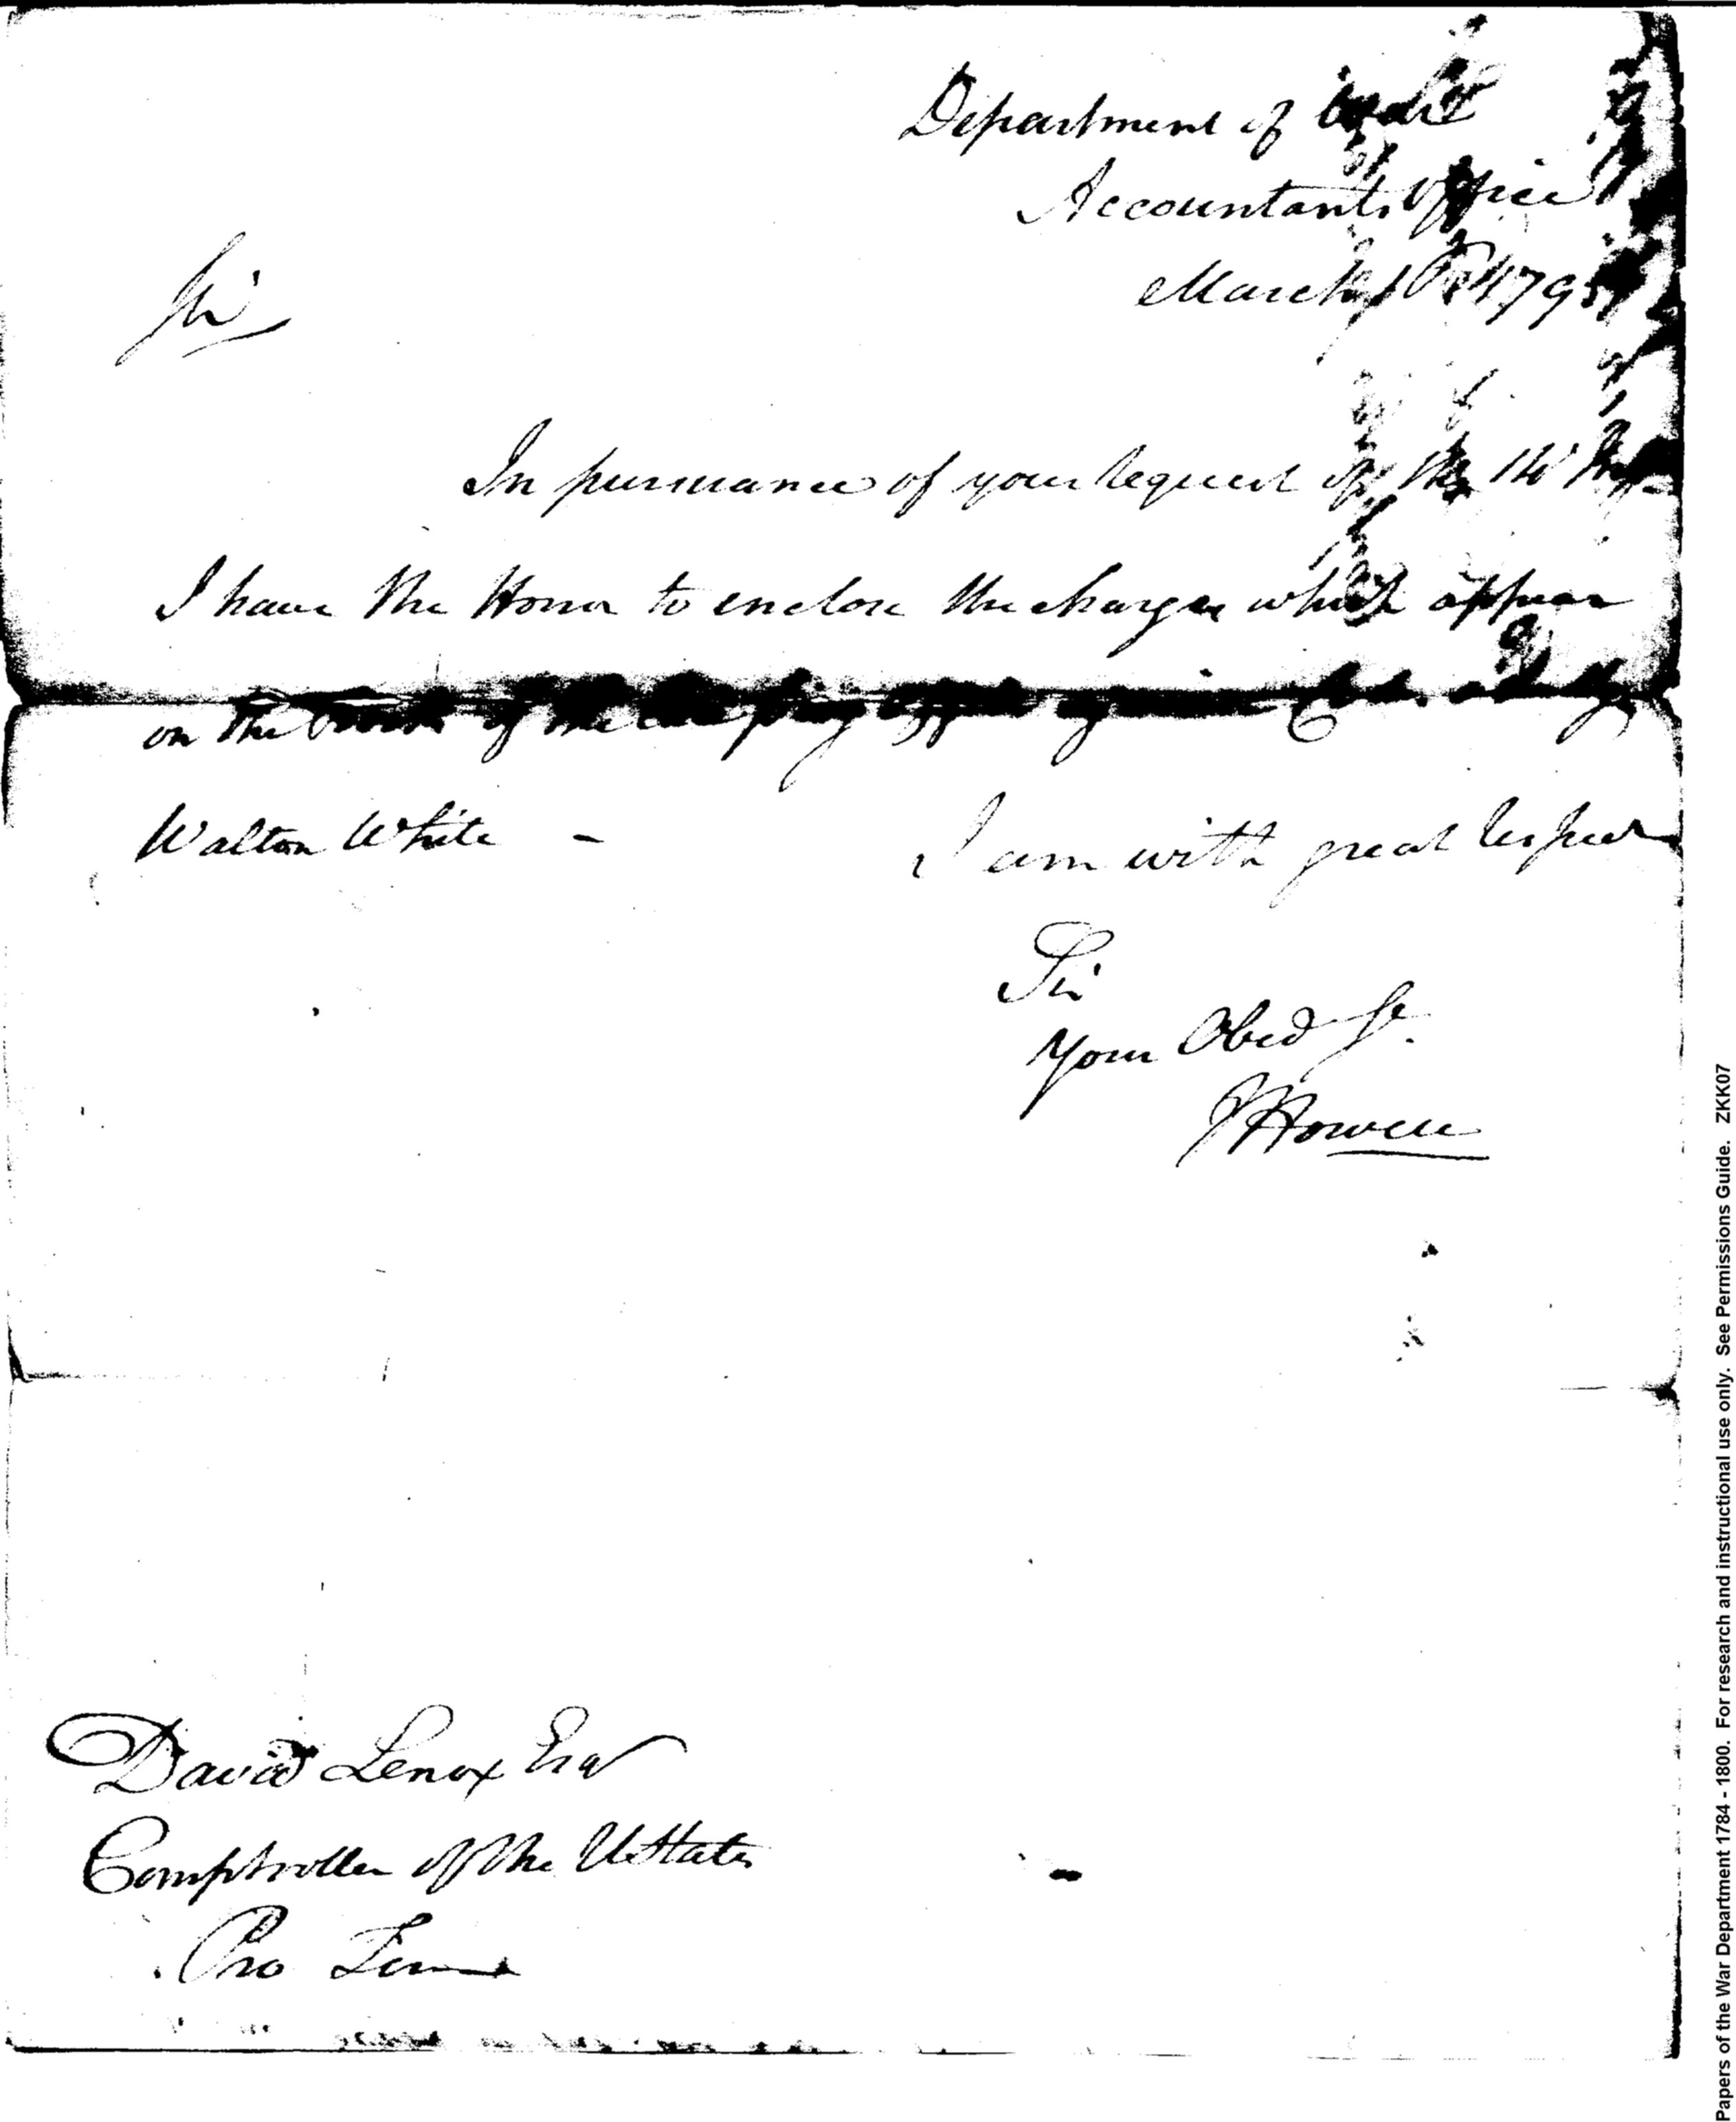 Department of War
Accountants Office
March 1795
Sir
In pursuance of your request of the
I have the Honor to enclose the charges which appear
on the books of the late pay office against Colo. Anthy
Walton White -
I am with great respect
Sir
Your Obed St.
J Howell
David Lenox Esqr
Comptroller of the UStates
Pro Tem
Papers of the War Department 1784 - 1800. For research and instructional use only. See Permissions Guide. ZKK07